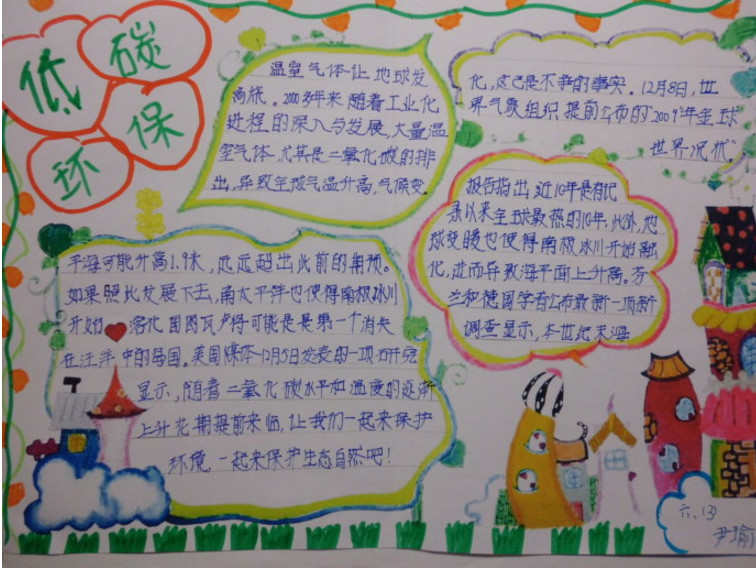 低碳
环保
温室气体让地球发
高烧。200多年来随着工业化
进程的深入与发展,大量温
室气体,尤其是二氧化碳的排
出,导致全球气温升高,气候变
化,这已是不争的事实。12月8日,世
界气象组织提前公布的"2009年全球
世界况状"
报告指出,近10年是有记
录以来全球最热的10年,此外,地
球变暖也使得南极冰川开始融
化,进而导致海平面上升高。芬
兰和德国学者公布最新一项新
调查显示,本世纪末海
平海可能升高1.9米,远远超出此前的期预。
如果照此发展下去,南太平洋也使得南极冰川
开始 溶化国图瓦卢将可能是是第一个消失
在汪洋中的岛国。美国媒体12月5日发表的一项研究
显示,随着二氧化碳水平和温度的逐渐
上升花期提前来临,让我们一起来保护
环境,一起来保护生态自然吧!
六、(3)
尹瑜